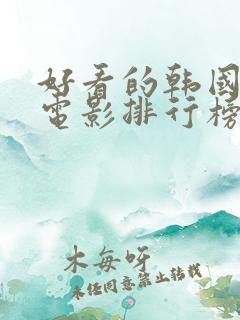 好看的韩国
电影排行榜
木每呀
未经同意禁止转载